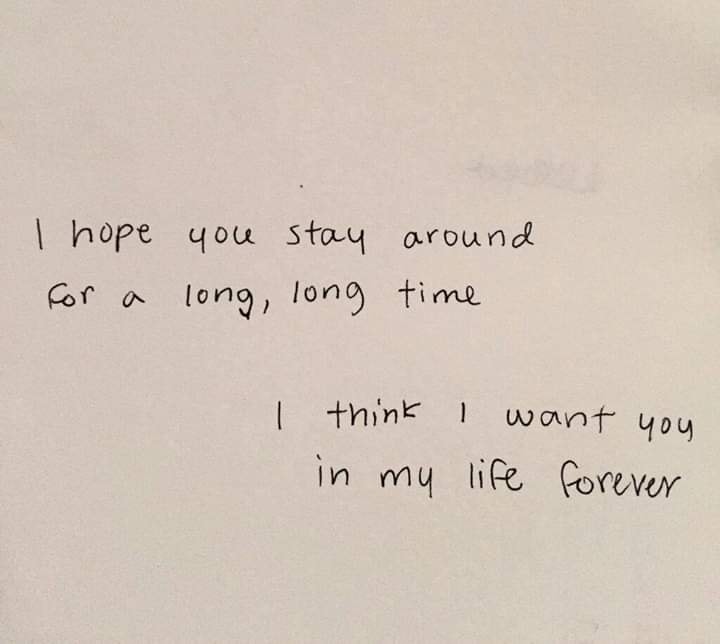 I hope you stay around
for a long, long time
I think I want you
in my life forever